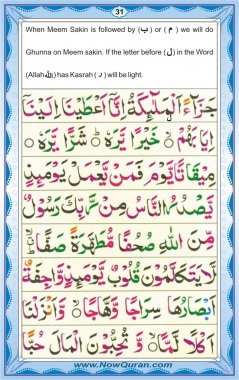 31
When Meem Sakin is followed by (ب) or (م) we will do
Ghunna on Meem sakin. If the letter before (ل) in the Word
(Allah ﷲ) has Kasrah ( ـِ ) will be light.
جَزَآءً اَلْمَلٰٓئِكَةُ اِنَّاۤ اَعْطَيْنَا اِلَيْنَاۤ
اِيَابَهُمْ ۝ خَيْرًا يَّرَهٗ ۝ شَرًّا يَّرَهٗ ۝
مِيْقَاتًا يَّوْمَ فَمَنْ يَّعْمَلْ يَوْمَئِذٍ
يَّصْدُرُ النَّاسُ مِنْ رَّبِّكَ رَسُوْلٌ
مِّنَ اللّٰهِ صُحُفًا مُّطَهَّرَةً صَفًّا
لَّا يَتَكَلَّمُوْنَ قُلُوْبٌ يَّوْمَئِذٍ وَّاجِفَةٌ
اَبْصَارُهَا سِرَاجًا وَّهَّاجًا ۝ وَّاَنْزَلْنَا
اَكْلًا لَّمًّا ۝ وَّتُحِبُّوْنَ الْمَالَ حُبًّا
www.NowQuran.com